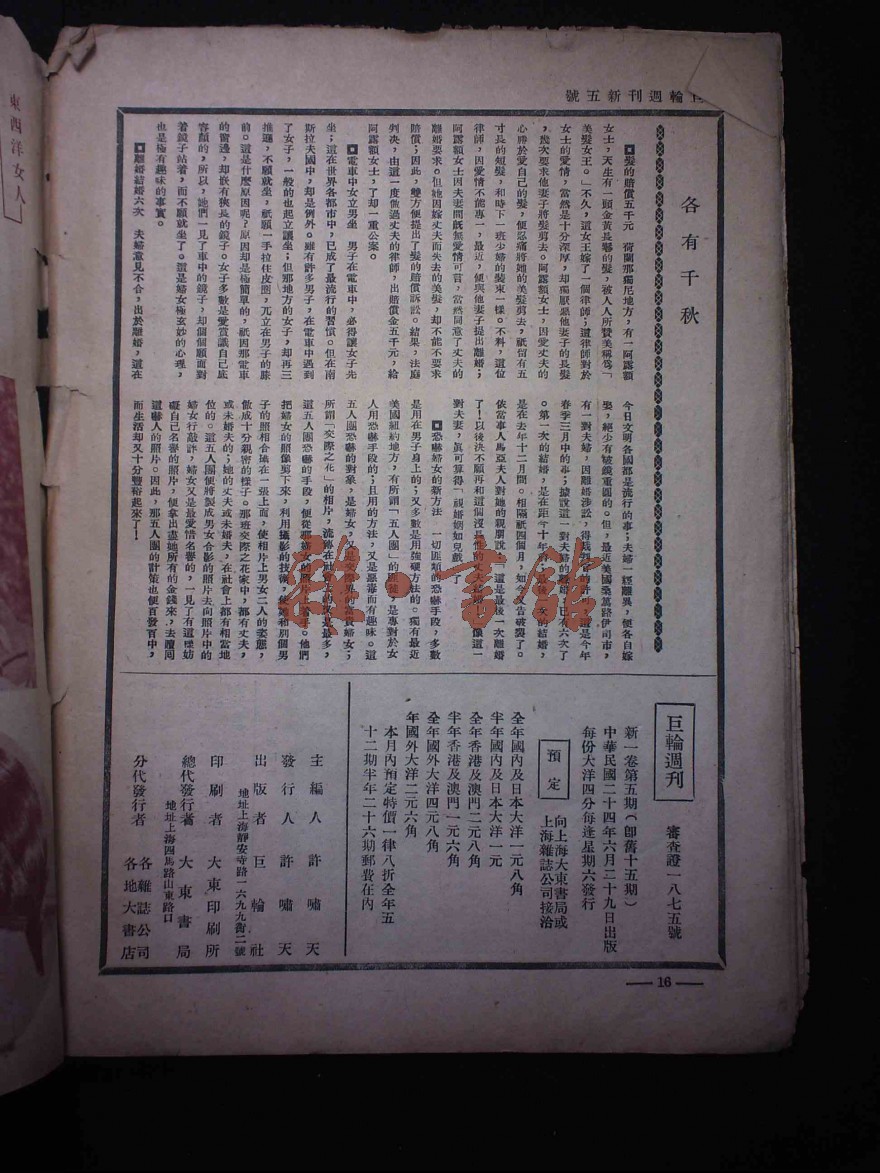 輪週刊新五號
東西洋女人
各有千秋
◘髮的賠償五千元　荷蘭那獨尼地方，有一阿露額
女士，天生有一頭金黃長髾的髮，被人人所贊美稱爲「
美髮女王。」不久，這女王嫁了一個律師；這律師對於
女士的愛情，當然是十分深厚，却獨厭惡他妻子的長髮
，幾次要求他妻子將髮剪去。阿露額女士，因愛丈夫的
心勝於愛自己的髮，便忍痛將她的美髮剪去，祇留有五
寸長的短髮，和時下一班少婦的髮束一樣。不料，這位
律師，因愛情不能專一，最近，便與他妻子提出離婚；
阿露額女士因夫妻間旣無愛情可言，當然同意了丈夫的
離婚要求。但她因嫁丈夫而失去的美髮，却不能不要求
賠償；因此，雙方便提出了髮的賠償訴訟。結果，法庭
判决，由這一度做過丈夫的律師，出賠償金五千元，給
阿露額女士，了却一重公案。
◘電車中女立男坐　男子在電車中，必得讓女子先
坐；這在世界各都市中，已成了最流行的習慣。但在南
斯拉夫國中，却是例外。雖有許多男子，在電車中遇到
了女子，一般的也起立讓坐；但那地方的女子，却再三
推遜，不願就坐，祇願一手拉住皮圈，兀立在男子的膝
前。這是什麼原因呢？原因却是極簡單的，祇因那電車
的窗邊，却嵌有狹長的鏡子。女子多數是愛賞識自己底
容顏的，所以，她們一見了車中的鏡子，却個個願面對
着鏡子站着，而不願就坐了。這是婦女極玄妙的心理，
也是極有趣味的事實。
◘離婚結婚六次　夫婦意見不合，出於離婚，這在
今日文明各國都是流行的事；夫婦一經離異，便各自嫁
娶，絕少有破鏡重圓的。但，最近美國桑篤路伊司市，
有一對夫婦，因離婚涉訟，得
春季三月中的事；據說這一對夫婦的離婚，已有六次了
。第一次的結婚，是在距今十年
是在去年十二月間。相隔祇四個月，如今又吿破裂了。
依當事人馬亞夫人對她的親朋說：「這是最後一次離婚
了！以後决不願再和這個沒
對夫妻，眞可算得「視婚姻如兒戲」了
◘恐嚇婦女的新方法　一切匪類的恐嚇手段，多數
是用在男子身上的；又多數是用强硬方法的。獨有最近
美國紐約地方，有所謂「五人團」的匪徒，是專對於女
人用恐嚇手段的；且用的方法，又是惡毒而有趣味。這
五人團恐嚇的對象，是婦女，又
所謂「交際之花」的相片，流
這五人團恐嚇的手段，便從那婦女的照片上着手。他們
把婦女的照像剪下來，利用攝影的技術，使她和別個男
子的照相合攝在一張上面，使相片上男女二人的姿態，
做成十分親密的樣子。那班交際之花家中，都有丈夫，
或未婚夫的；她的丈夫或未婚夫，在社會上都有相當地
位的。這五人團便將製成男女合影的照片去向照片中的
婦女行敲詐，婦女又是最愛惜名譽的，一見了有這樣妨
礙自己名譽的照片，便拿出盡她所有的金錢來，去贖囘
這嚇人的照片。因此，那五人團的計策也便百發百中，
而生活却又十分豐裕起來了！
巨輪週刊
審查證一八七五號
新一卷第五期（卽舊十五期）
中華民國二十四年六月二十九日出版
每份大洋四分每逢星期六發行
預定
向上海大東書局或
上海雜誌公司接洽
全年國內及日本大洋一元八角
半年國內及日本大洋一元
全年香港及澳門二元八角
半年香港及澳門一元六角
全年國外大洋四元八角
年國外大洋二元六角
本月內預定特價一律八折全年五
十二期半年二十六期郵費在內
主編人　許嘯天
發行人　許嘯天
出版者　巨輪社
地址上海靜安寺路一六九九衖二號
印刷者　大東印刷所
總代發行者　大東書局
地址上海四馬路山東路口
分代發行者　各雜誌公司
各地大書店
16